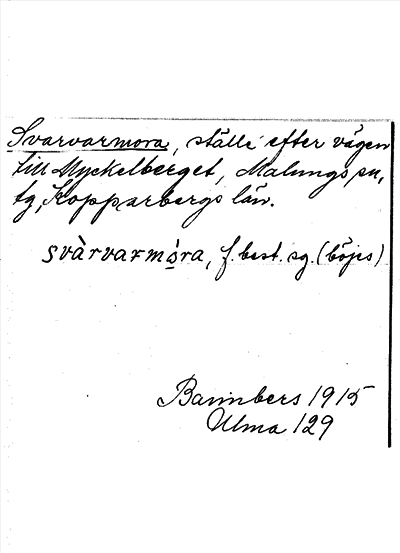 Svarvarmora, ställe efter vägen
till Myckelberget, Malungs sn,
tg, Kopparbergs län.
svàrvarmó̲ra, f. best. sg. (böjes)
Bannbers 1915
Ulma 129